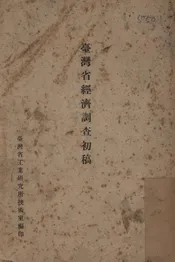 臺灣省經濟調查初稿
臺灣省工業研究所技術室編印